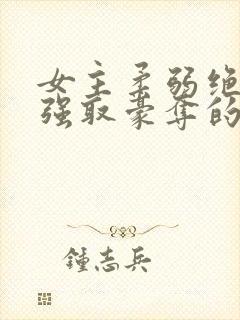 女主柔弱绝
强取豪夺的
鍾志兵